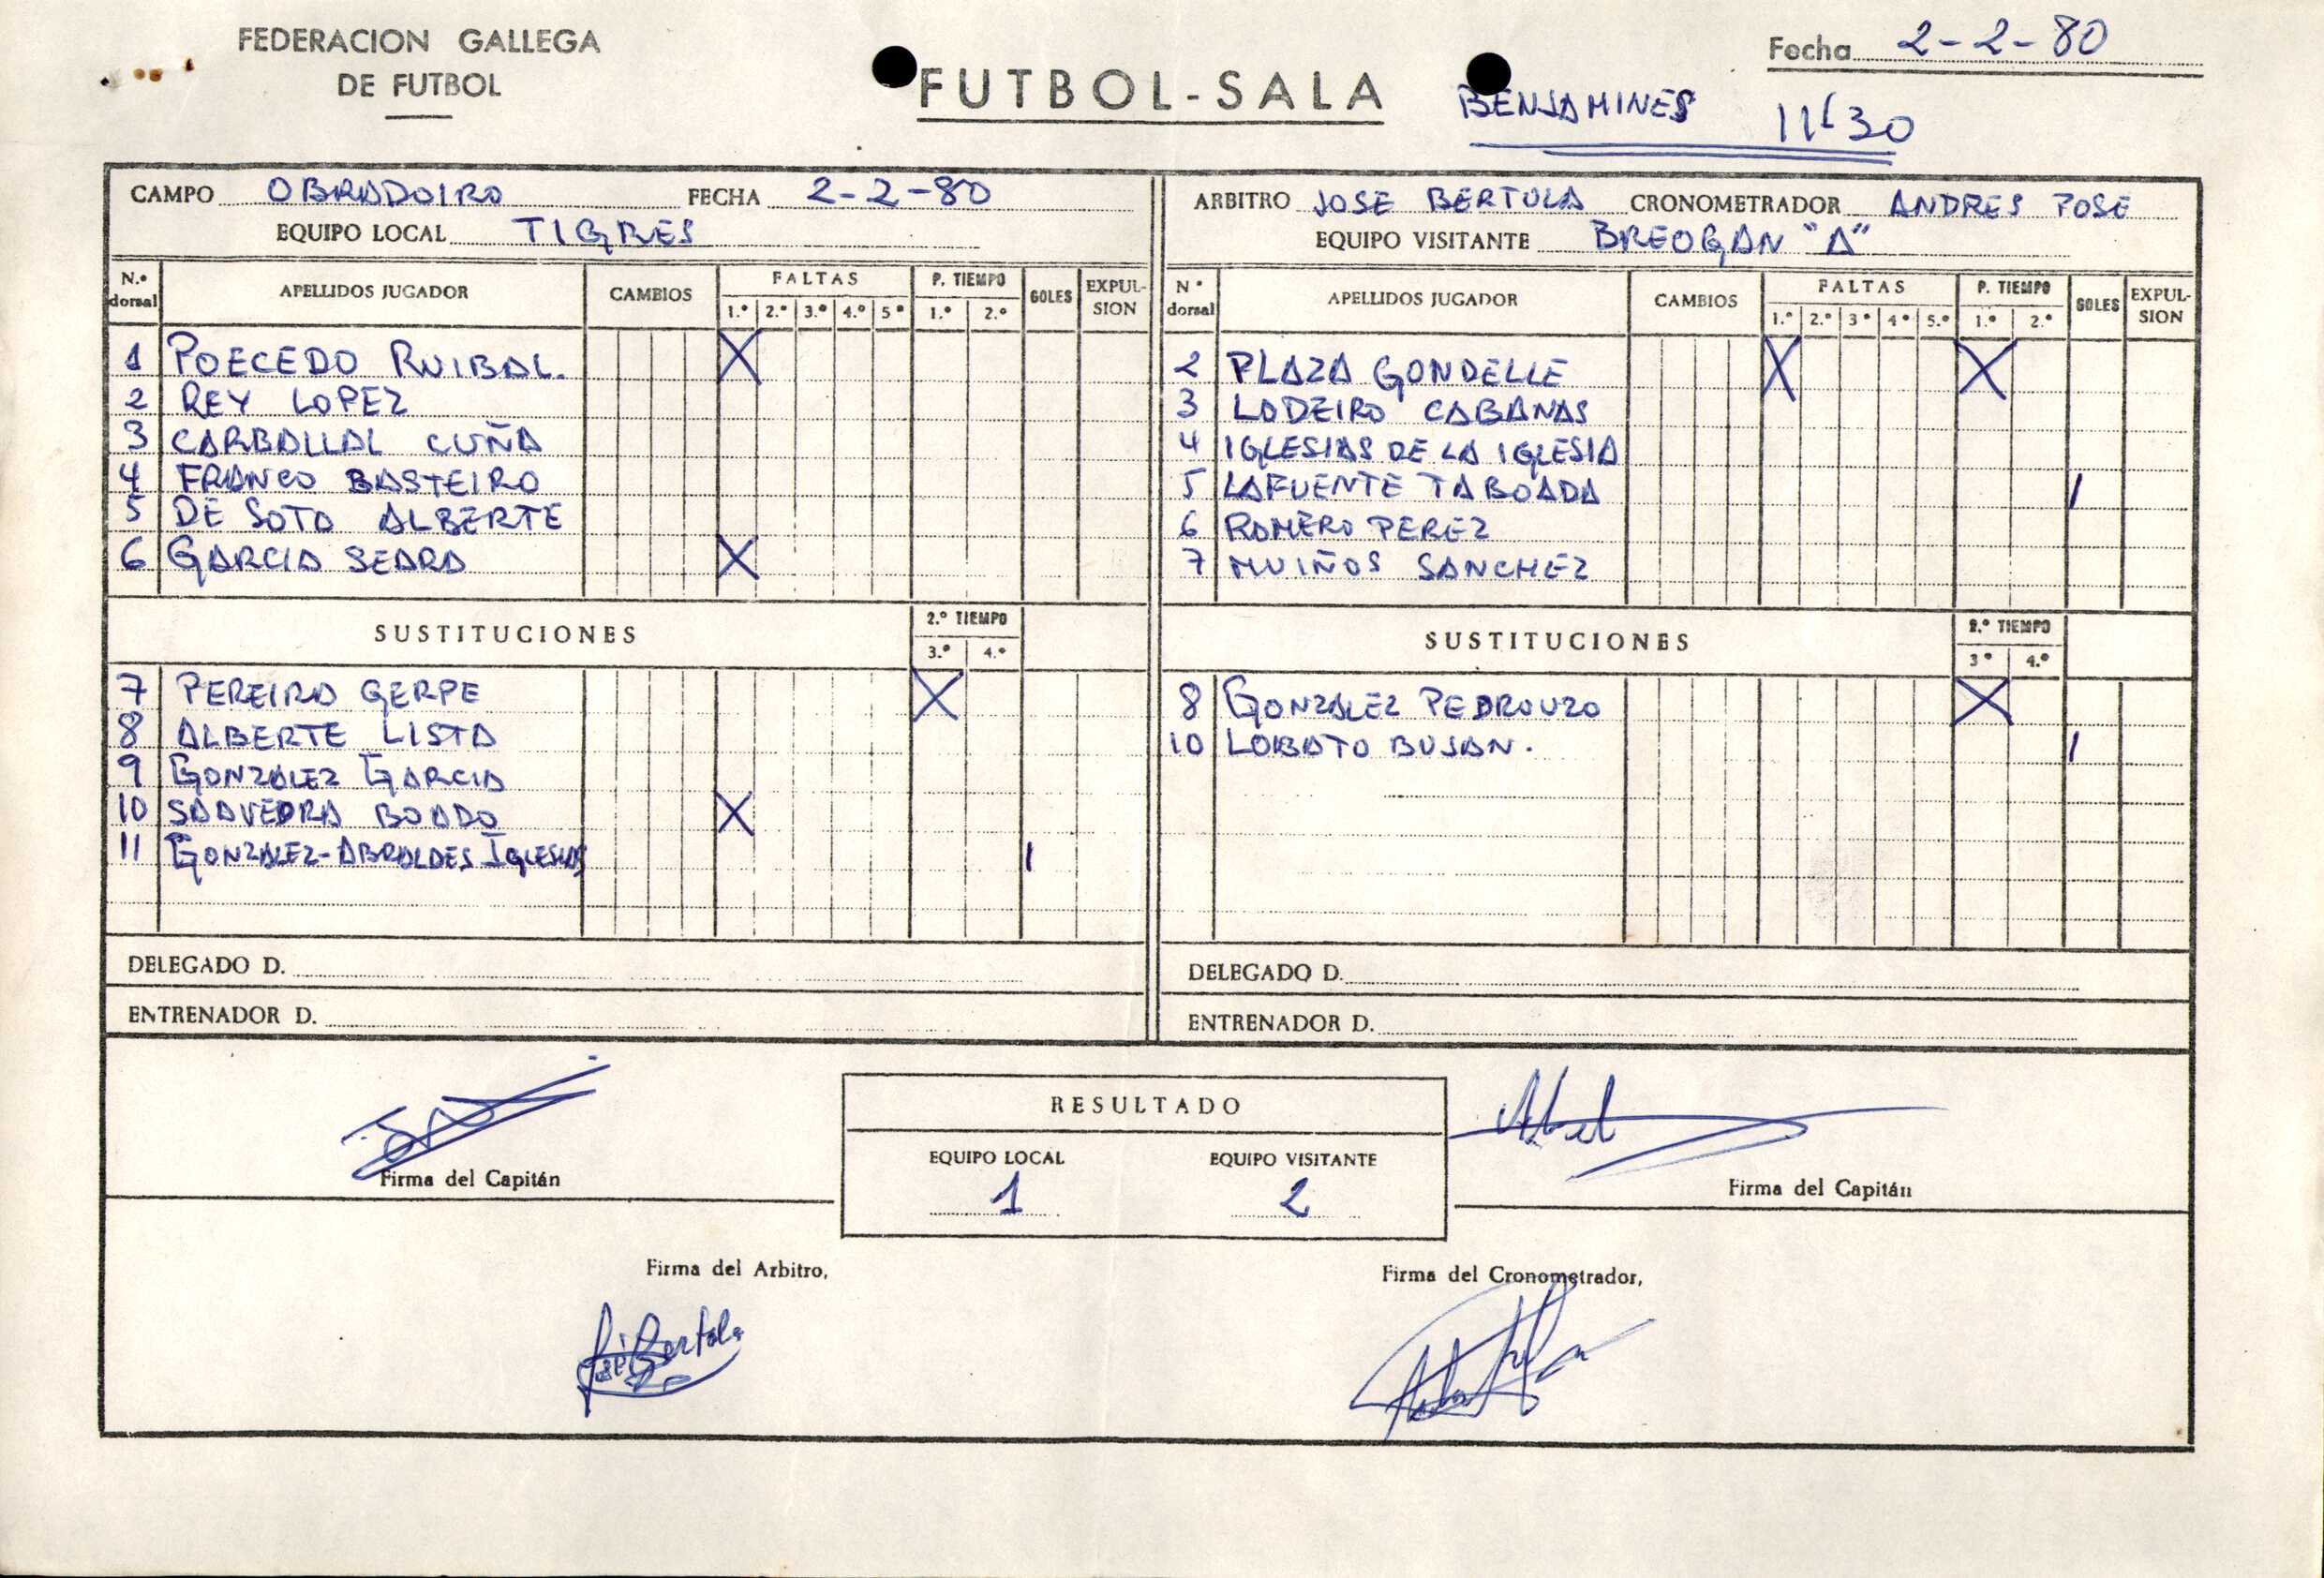 FEDERACION GALLEGA
DE FUTBOL
FUTBOL-SALA
BENJAMINES
Fecha 2-2-80
11'30
CAMPO OBRADOIRO FECHA 2-2-80
EQUIPO LOCAL TIGRES
ARBITRO JOSE BERTULA CRONOMETRADOR ANDRES POSE
EQUIPO VISITANTE BREOGAN "A"
N.º dorsal APELLIDOS JUGADOR CAMBIOS FALTAS 1.º 2.º 3.º 4.º 5º P. TIEMPO 1.º 2.º GOLES EXPULSION
1 POECEDO RUIBAL. X
2 REY LOPEZ
3 CARBALLAL CUÑA
4 FRANCO BASTEIRO
5 DE SOTO ALBERTE
6 GARCIA SEARA X
SUSTITUCIONES 2.º TIEMPO 3.º 4.º
7 PEREIRA GERPE X
8 ALBERTE LISTA
9 GONZALEZ GARCIA
10 SAAVEDRA BOADO X
11 GONZALEZ-ABRALDES IGLESIAS 1
DELEGADO D.
ENTRENADOR D.
Nº dorsal APELLIDOS JUGADOR CAMBIOS FALTAS 1.º 2.º 3º 4º 5.º P. TIEMPO 1.º 2.º GOLES EXPULSION
2 PLAZA GONDELLE X X
3 LODEIRO CABANAS
4 IGLESIAS DE LA IGLESIA
5 LAFUENTE TABOADA 1
6 ROMERO PEREZ
7 MUIÑOS SANCHEZ
SUSTITUCIONES 2.º TIEMPO 3º 4.º
8 GONZALEZ PEDROUZO X
10 LOBATO BUJAN. 1
DELEGADO D.
ENTRENADOR D.
RESULTADO
EQUIPO LOCAL EQUIPO VISITANTE
1 2
Firma del Capitán
Firma del Capitán
Firma del Arbitro,
Firma del Cronometrador,
José Bertola